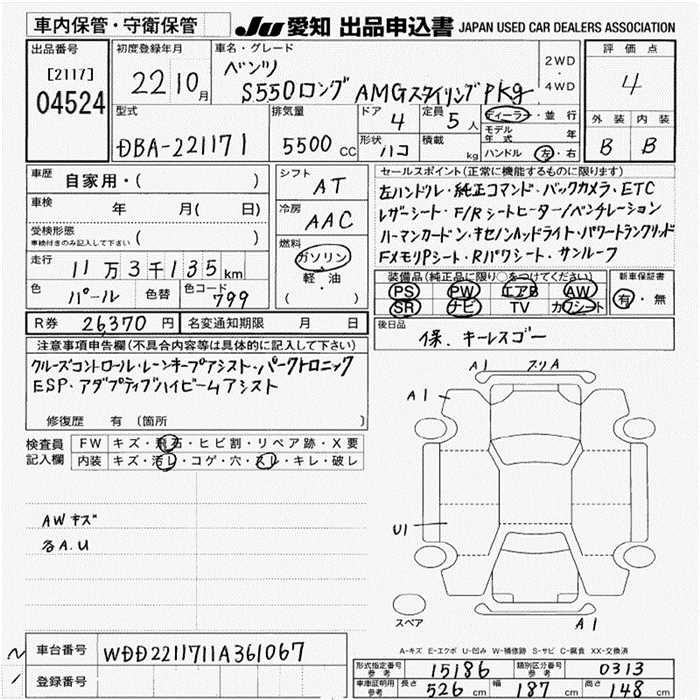 車内保管・守衛保管 JU 愛知 出品申込書 JAPAN USED CAR DEALERS ASSOCIATION
出品番号 初度登録年月 車名・グレード 評価点
[2117] 22 10月 ベンツ 2WD
04524 S550ロング AMGスタイリングPkg ・4WD 4
型式 排気量 ドア 定員 ディーラー・並行 外装 内装
DBA-221171 5500CC 4 5人 モデル年式 年 B B
形状 ハコ 積載 kg ハンドル 左・右
車歴 自家用・( ) シフト AT セールスポイント(正常に機能するものに限ります)
左ハンドル・純正コマンド・バックカメラ・ETC
車検 年 月( 日) 冷房 AAC レザーシート・F/Rシートヒーター/ベンチレーション
受検形態 車検付きのみ記入して下さい ( ) ハーマンカードン・キセノンヘッドライト・パワートランクリッド
走行 11万3千135km 燃料 ガソリン FメモリPシート・Rパワシート・サンルーフ
軽・油 ( ) 装備品(純正品に限り○をつけてください) 新車保証書
色 パール 色替 色コード 799 PS PW エアB AW 有・無
SR ナビ TV カワシート
R券 26,370円 名変通知期限 月 日 後日品
保、キーレスゴー
注意事項申告欄(不具合内容等は具体的に記入して下さい)
クルーズコントロール・レーンキープアシスト・パークトロニック
ESP・アダプティブハイビームアシスト
修復歴 有(箇所 )
A1 フリA
A1
検査員記入欄 FW キズ・飛石・ヒビ割・リペア跡・X要
内装 キズ・汚レ・コゲ・穴・スレ・キレ・破レ
AWキズ
U1
るA.U
スペア
A1
A-キズ E-エクボ U-凹み W-補修跡 S-サビ C-腐食 XX-交換済
車台番号 WDD2211711A361067
登録番号
形式指定番号 参考 15186 類別区分番号 参考 0313
車庫証明用 参考 長さ 526cm 幅 187cm 高さ 148cm